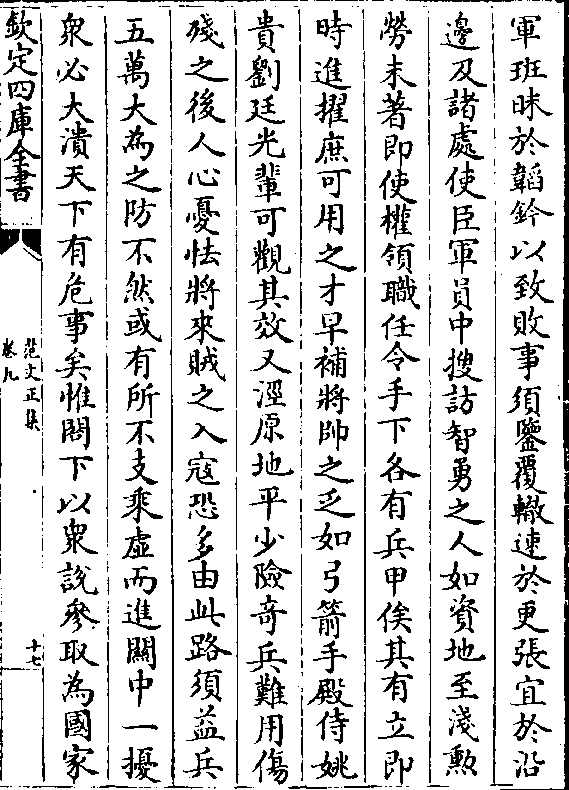 軍班昧於韜鈐以致敗事須鑒覆轍速於更張宜於沿
邊及諸處使臣軍員中搜訪智勇之人如資地至淺勲
勞未著即使權領職任令手下各有兵甲俟其有立即
時進擢庶可用之才早補將帥之乏如弓箭手殿侍姚
貴劉廷光輩可觀其效又涇原地平少險竒兵難用傷
殘之後人心憂怯將來賊之入寇恐多由此路須益兵
五萬大為之防不然或有所不支乘虛而進關中一擾
衆必大潰天下有危事矣惟閣下以衆說參取為國家
欽定四庫全書
范文正集
卷九
十七